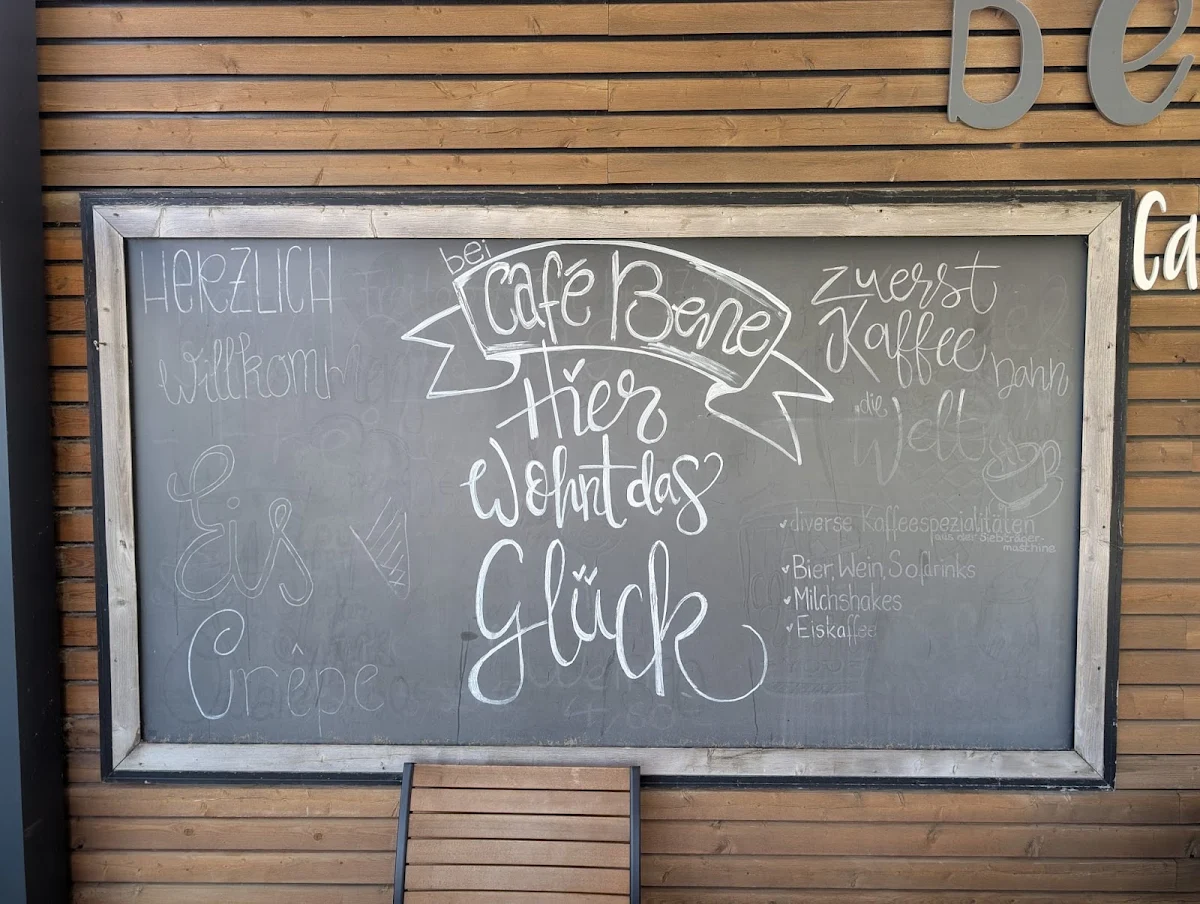 Be
Ca
HERZLICH
Willkommen
Eis
Crêpe
bei
Café Bene
Hier
Wohnt das
Glück
zuerst
Kaffee
dann
die
Welt
diverse Kaffeespezialitäten
aus der Siebträger-
maschine
Bier, Wein, Sofdrinks
Milchshakes
Eiskaffee